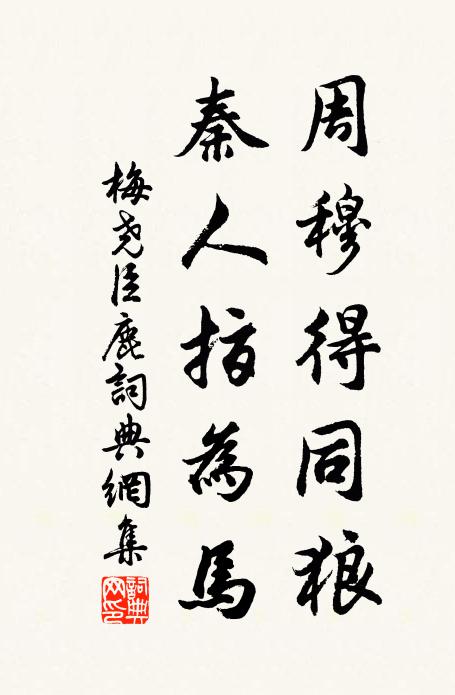 周穆得同狼
秦人指為馬
梅堯臣鹿詞典網集
詞典网印